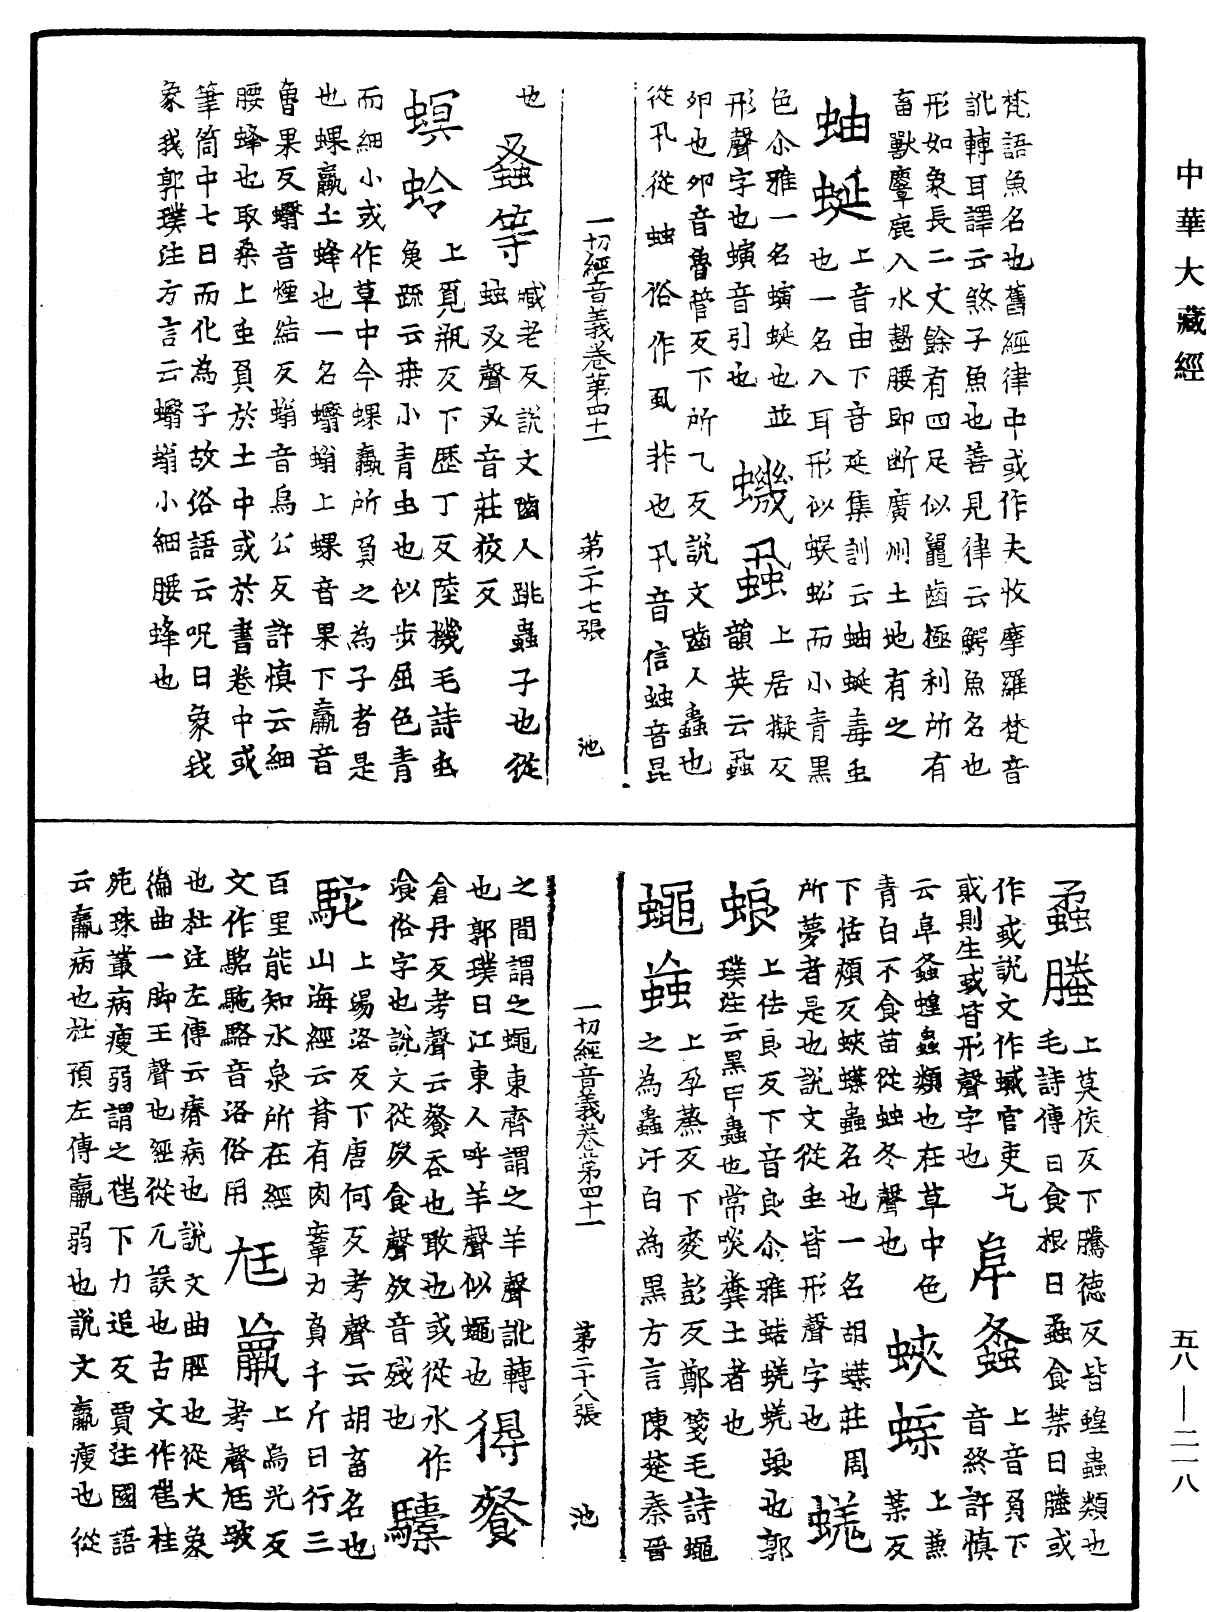 中華大藏經
梵語魚名也舊經律中或作失收摩羅梵音
訛轉耳譯云煞子魚也善見律云鰐魚名也
形如象長二丈餘有四足似鼉齒極利所有
畜獸麞鹿入水齧腰即断廣州土地有之
蚰蜒 上音由下音延集訓云蚰蜒毒虫
也一名入耳形似蜈蚣而小青黑
色尒雅一名螾蜒也並
形聲字也螾音引也
蟣蝨 上居擬反
韻英云蝨
夘也夘音魯管反下所乙反說文齧人蟲也
從卂從䖵俗作虱非也卂音信䖵音昆
一切經音義卷第四十一 第二十七張 池
也
蚤等 臧老反說文齧人跳蟲子也從
䖵㕚聲㕚音莊狡反
螟蛉 上覓瓶反下歷丁反陸機毛詩虫
魚䟽云桒小青虫也似步屈色青
而細小或作草中今蜾蠃所負之為子者是
也蜾蠃土蜂也一名蠮螉上蜾音果下蠃音
魯果反蠮音煙結反螉音烏公反許慎云細
腰蜂也取桑上虫負於土中或於書卷中或
筆筒中七日而化為子故俗語云呪曰象我
象我郭璞注方言云蠮螉小細腰蜂也
蟊螣 上莫侯反下騰德反皆蝗蟲類也
毛詩傳曰食根曰蟊食葉曰螣或
作或說文作蟘官吏乞
貣則生或皆形聲字也
阜螽 上音負下
音終許慎
云阜螽蝗蟲類也在草中色
青白不食苗從䖵冬聲也
蛺蝶 上兼
葉反
下恬頰反蛺蝶蟲名也一名胡蝶莊周
所夢者是也說文從虫皆形聲字也
蜣
蜋 上佉良反下音良尒雅蛣蜣蜣蜋也郭
璞注云黑甲蟲也常啖糞土者也
蠅䘇 上孕蒸反下麥彭反鄭箋毛詩蠅
之為蟲汙白為黑方言陳楚秦晉
一切經音義卷第四十一 第二十八張 池
之間謂之蠅東齊謂之羊聲訛轉
也郭璞曰江東人呼羊聲似蠅也
得餐
倉丹反考聲云餐吞也敢也或從水作
湌俗字也說文從𣦼食聲𣦼音殘也
驝
駝 上湯洛反下唐何反考聲云胡畜名也
山海經云背有肉鞌力負千斤日行三
百里能知水泉所在經
文作駱馳駱音洛俗用
尫羸 上烏光反
考聲尫跛
也杜注左傳云瘠病也說文曲脛也從大象
偏曲一脚王聲也經從兀誤也古文作㝿桂
苑珠叢病瘦弱謂之㝿下力追反賈注國語
云羸病也杜預左傳羸弱也說文羸瘦也從
五八—二一八